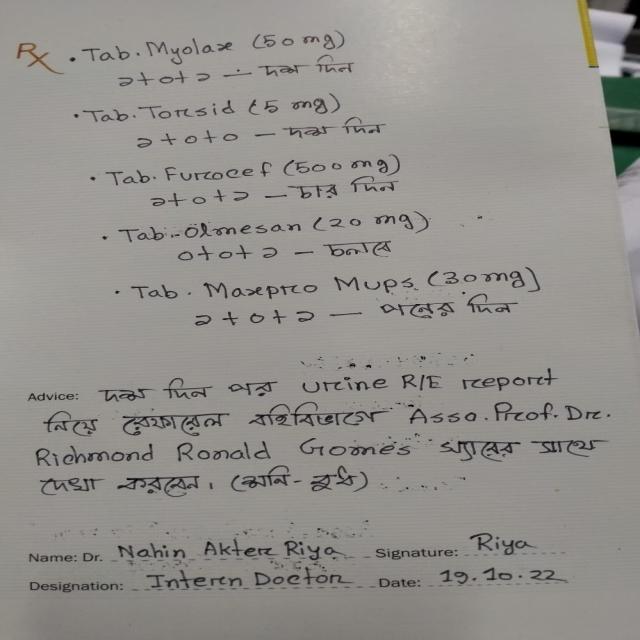 Rx • Tab. Myolax (50 mg)
১+০+১ — দশ দিন
• Tab. Torsid (5 mg)
১+০+০ — দশ দিন
• Tab. Furocef (500 mg)
১+০+১ — চার দিন
• Tab. Olmesan (20 mg)
০+০+১ — চলবে
• Tab. Maxpro Mups (30mg)
১+০+১ — পনের দিন
Advice: দশ দিন পর Urine R/E report
নিয়ে রেফারেল বহির্বিভাগে Asso. Prof. Dr.
Richmond Ronald Gomes স্যারের সাথে
দেখা করবেন। (শনি - বুধ)
Name: Dr. Nahin Akter Riya Signature: Riya
Designation: Intern Doctor Date: 19.10.22